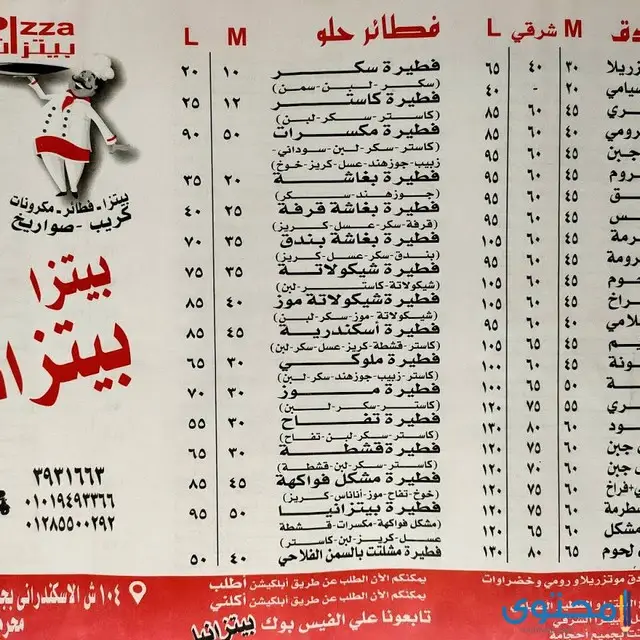 M شرقي L
زريلا ٣٠ ٤٠ ٦٥
سيامي ٢٠ - ٤٠
ري ٤٥ ٦٠ ٨٥
رومي ٤٠ ٦٠ ٨٥
جبن ٤٥ ٦٠ ٩٥
روم ٤٥ ٦٠ ٩٥
ق ٤٥ ٦٠ ٩٥
س ٤٥ ٦٠ ٩٥
رمة ٤٥ ٦٠ ١٠٥
رومة ٤٥ ٦٠ ٩٥
وم ٤٥ ٦٠ ١٠٥
راخ ٤٥ ٦٠ ١٠٥
لامي ٤٠ ٦٠ ٩٥
يم ٤٥ ٦٠ ١٠٥
ونة ٤٥ ٦٠ ١٠٠
ة ٥٠ ٦٥ ١٠٠
ري ٥٥ ٧٥ ١٢٠
ود ٦٠ ٨٠ ١٣٠
جبن ٦٠ ٧٥ ١٢٠
جبن ٦٠ ٧٠ ١٢٠
+فراخ ٦٠ ٧٥ ١٢٠
سطرمة ٦٠ ٧٥ ١٢٠
مشكل ٦٠ ٦٥ ١٢٠
لحوم ٦٥ ٨٠ ١٣٠
دق موتزريلا ورومي وخضراوات
فطائر حلو M L
فطيرة سكر ١٠ ٢٠
(سكر-لبن-سمن)
فطيرة كاستر ١٢ ٢٥
(كاستر-سكر-لبن)
فطيرة مكسرات ٥٠ ٩٠
(كاستر-سكر-لبن-سوداني-
زبيب-جوزهند-عسل-كريز-خوخ)
فطيرة بغاشة ٢٠ ٣٥
(جوزهند-سكر)
فطيرة بغاشة قرفة ٢٥ ٤٠
(قرفة-سكر-عسل-كريز)
فطيرة بغاشة بندق ٣٥ ٧٠
(بندق-سكر-عسل-كريز)
فطيرة شيكولاتة ٣٥ ٧٥
(شيكولاتة-كاستر-لبن)
فطيرة شيكولاتة موز ٤٠ ٨٥
(شيكولاتة-موز-سكر-لبن)
فطيرة أسكندرية ٤٥ ٨٥
(كاستر-قشطة-كريز-عسل-سكر-لبن)
فطيرة ملوكي ٣٠ ٦٥
(كاستر-زبيب-جوزهند-سكر-لبن)
فطيرة موز ٣٠ ٧٠
(كاستر-سكر-لبن)
فطيرة تفاح ٣٠ ٥٥
(كاستر-سكر-لبن-تفاح)
فطيرة قشطة ٣٠ ٦٥
(كاستر-سكر-لبن-قشطة)
فطيرة مشكل فواكهة ٤٥ ٨٥
(خوخ-تفاح-موز-أناناس-كريز)
فطيرة بيتزانيا ٥٠ ٩٥
(مشكل فواكهة-مكسرات-قشطة
عسل-كريز-لبن-كاستر)
فطيرة مشلتت بالسمن الفلاحي ٤٠ ٥٠
يمكنكم الأن الطلب عن طريق أبلكيشن أطلب
يمكنكم الأن الطلب عن طريق أبلكيشن أكلني
تابعونا علي الفيس بوك بيتزانيا
محتوى
Pizza
بيتزا
بيتزا-فطائر-مكرونات
كريب-صواريخ
بيتزا
٣٩٣١٦٦٣
٠١٠١٩٤٩٣٣٦٦
٠١٢٨٥٥٠٠٢٩٢
١٠٤ ش الاسكندرانى